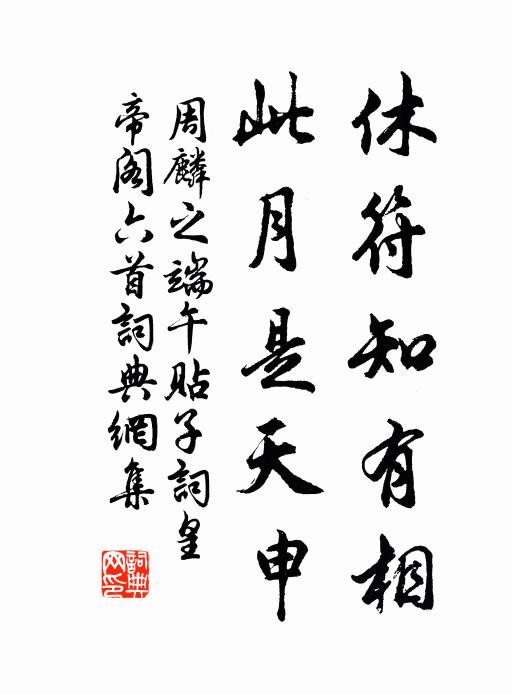 休符知有相
此月是天申
周麟之端午貼子詞皇
帝閣六首詞典網集
詞典
网印